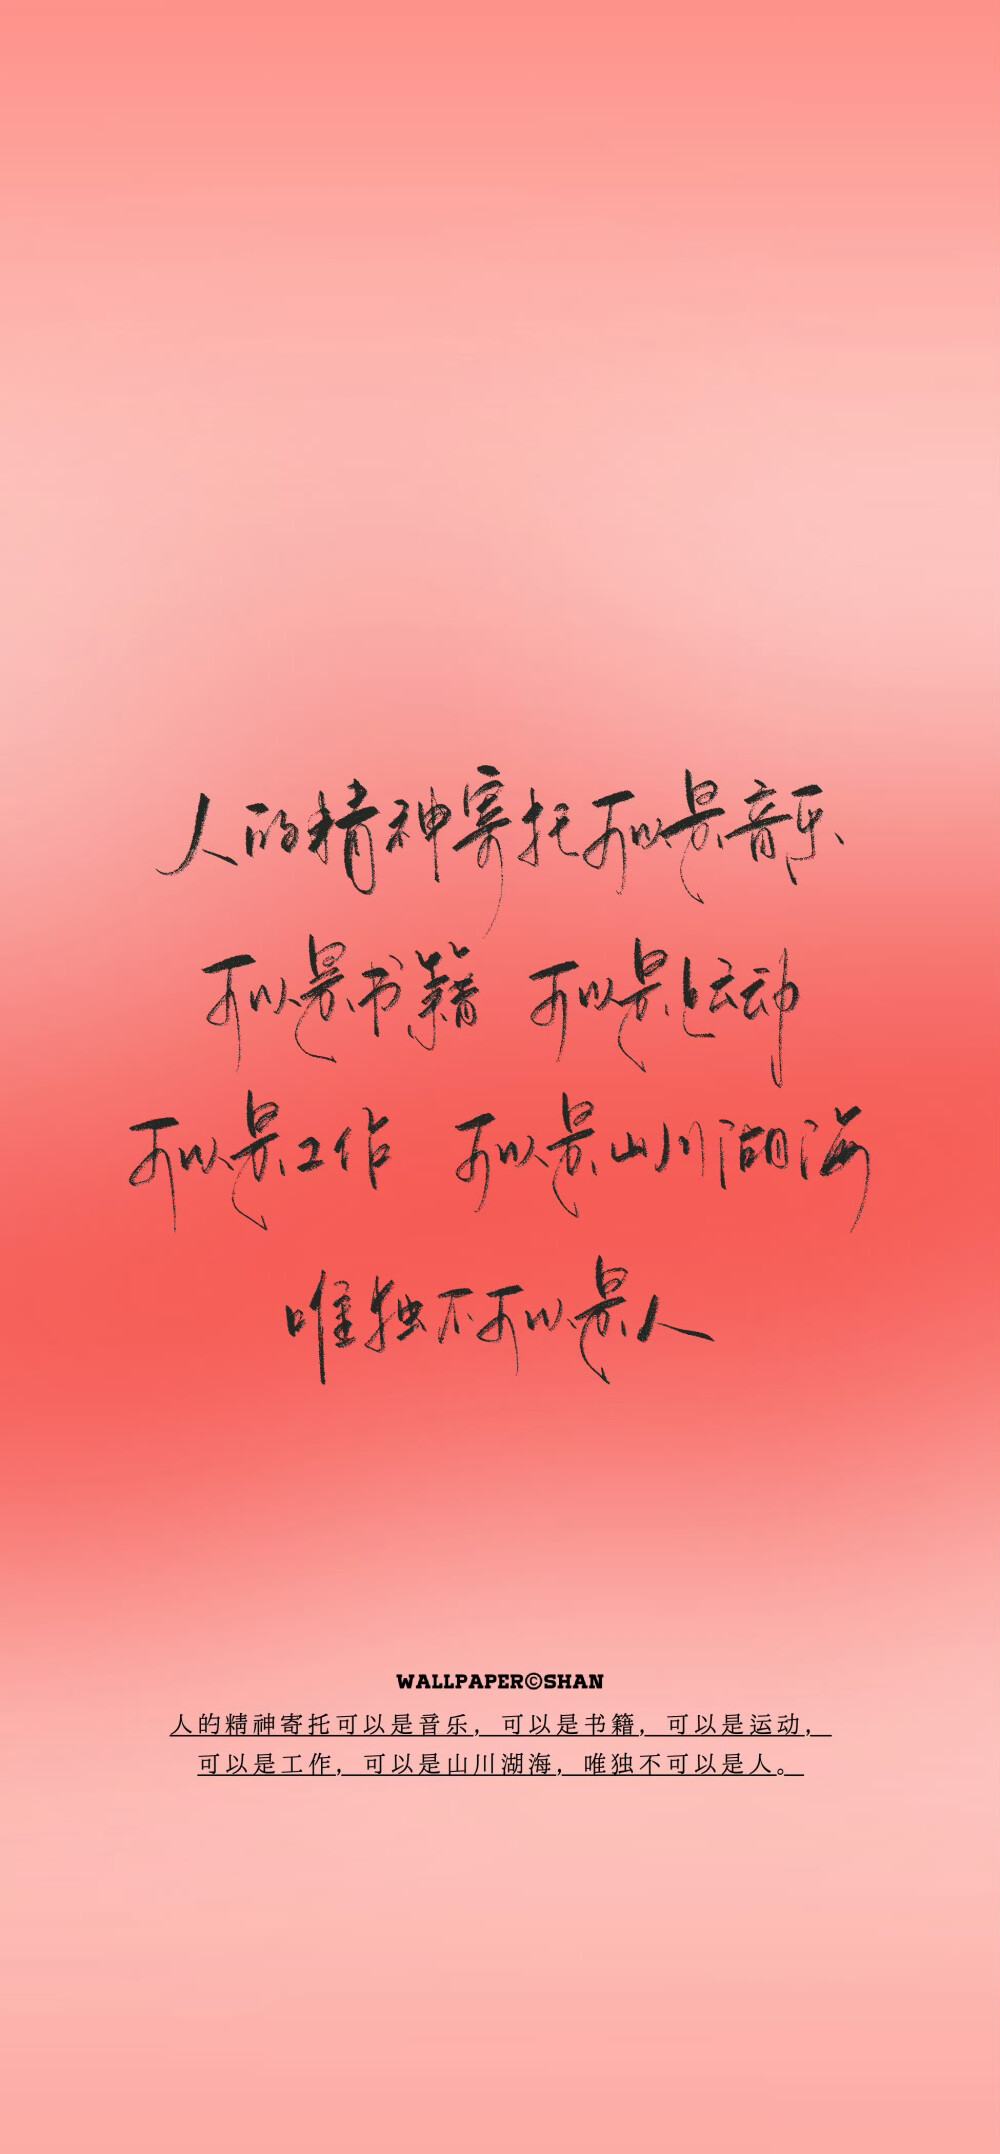 人的精神寄托可以是音乐
可以是书籍 可以是运动
可以是工作 可以是山川湖海
唯独不可以是人
WALLPAPER©SHAN
人的精神寄托可以是音乐，可以是书籍，可以是运动，
可以是工作，可以是山川湖海，唯独不可以是人。